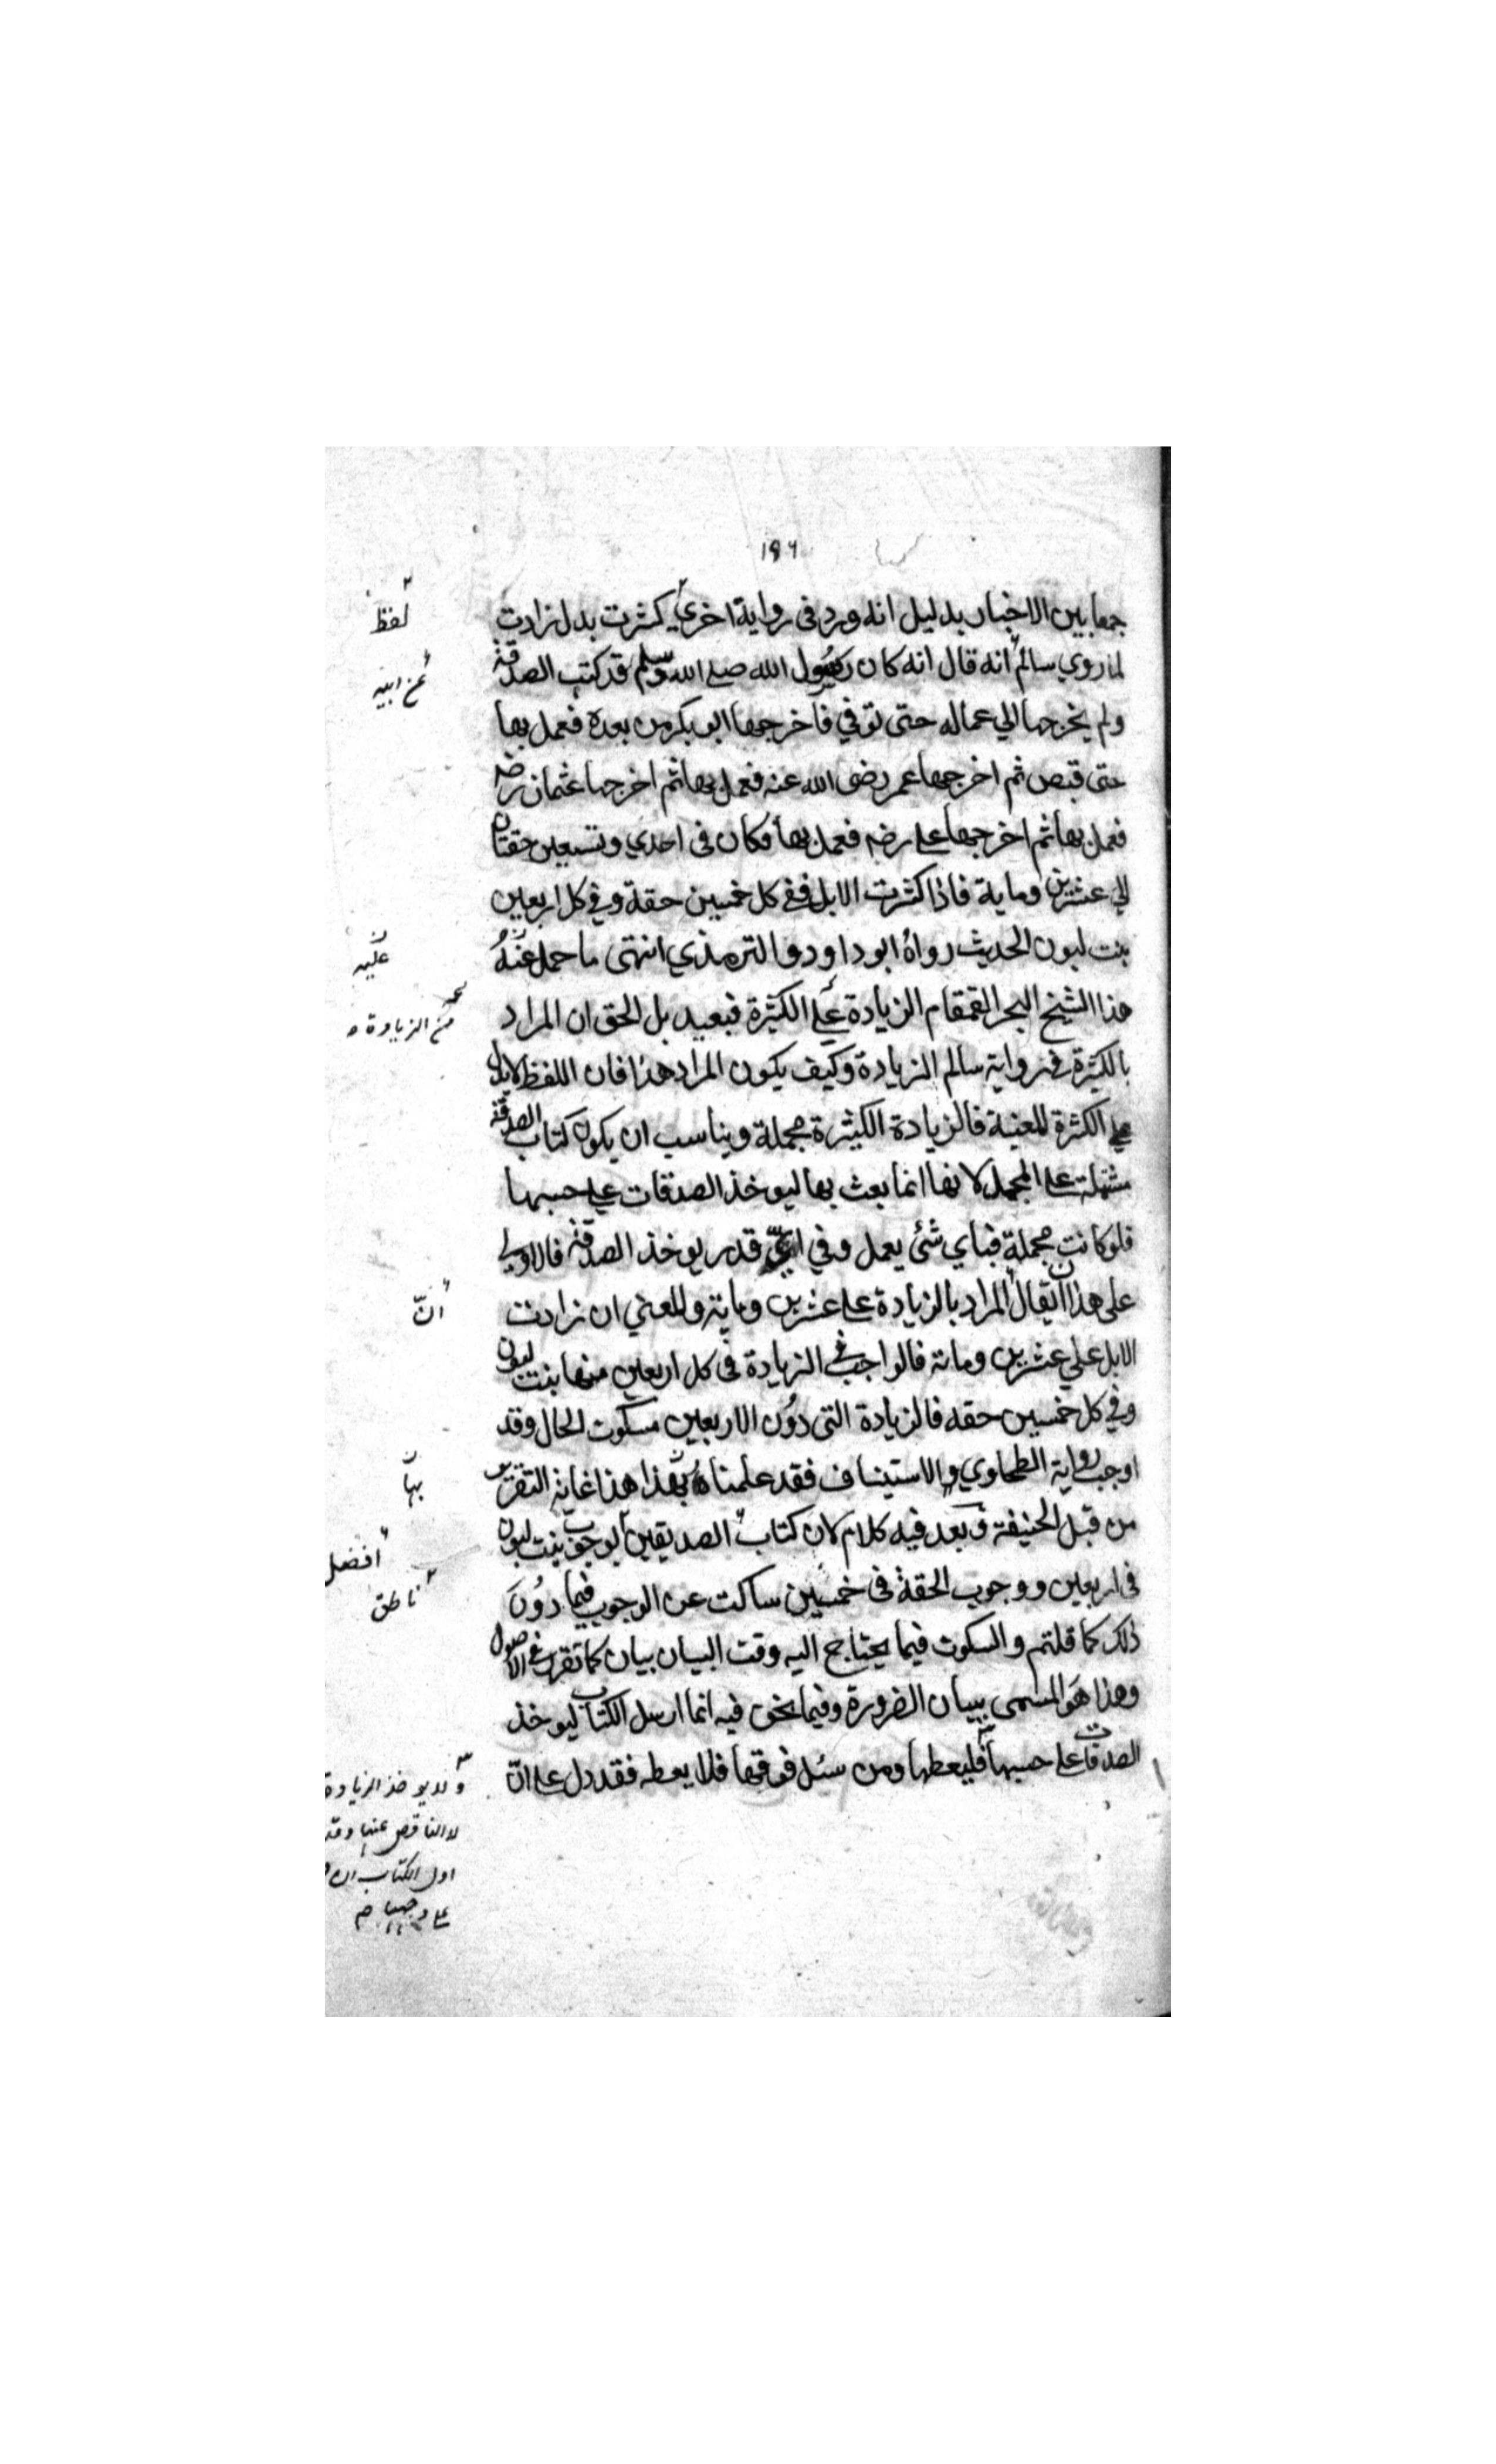 ١٩٦
جمعا بين الاخبار بدليل انه ورد فى رواية اخري كثرت بدل زادت
لما روي سالم انه قال انه كان رسول الله صلى الله وسلم قد كتب الصدقة
ولم يخرجها الي عماله حتى توفي فاخرجها ابو بكر من بعده فعمل بها
حتى قبض ثم اخرجها عمر رضى الله عنه فعمل بها ثم اخرجها عثمان رضه
فعمل بها ثم اخرجها علي رضه فعمل بها فكان فى احدي وتسعين حقتان
الي عشرين وماية فاذا كثرت الابل ففي كل خمسين حقة وفي كل اربعين
بنت لبون الحديث رواه ابو داود والترمذي انتهى ما حمل عنه
هذا الشيخ البحر القمقام الزيادة علي الكثرة فبعيد بل الحق ان المراد
بالكثرة في رواية سالم الزيادة وكيف يكون المراد هذا فان اللفظ لا يدل
علي الكثرة المعينة فالزيادة الكثيرة مجملة ويناسب ان يكون كتاب الصدقة
مشتملة علي المجمل لانها انما بعث بها ليوخذ الصدقات علي حسبها
فلو كانت مجملة فباي شئ يعمل وفي اي قدر يوخذ الصدقة فالاولي
على هذا ان يقال المراد بالزيادة علي عشرين وماية والمعني ان زادت
الابل علي عشرين وماتة فالواجب في الزيادة فى كل اربعين منها بنت لبون
وفي كل خمسين حقه فالزيادة التى دون الاربعين مسكوت الحال وقد
اوجب رواية الطحاوي والاستيناف فقد علمناه بهذا هذا غاية التقرير
من قبل الحنيفة وبعد فيه كلام لان كتاب الصديقين بوجوب بنت لبون
فى اربعين ووجوب الحقة فى خمسين ساكت عن الوجوب فيما دون
ذلك كما قلتم والسكوت فيما يحتاج اليه وقت البيان بيان كما تقرر في الاصول
وهذا هو المسمى ببيان الضرورة وفيما نحن فيه انما ارسل الكتاب ليوخذ
الصدقات علي حسبها فليعطها ومن سئل فوقها فلا يعطه فقد دل علي ان
لفظ
عن ابيه
عليه
من الزيادة
ان
بها
افضل
ناطق
ولا يوخذ الزيادة
لا الناقص عنها وقد
اول الكتاب ان
علي وجهها